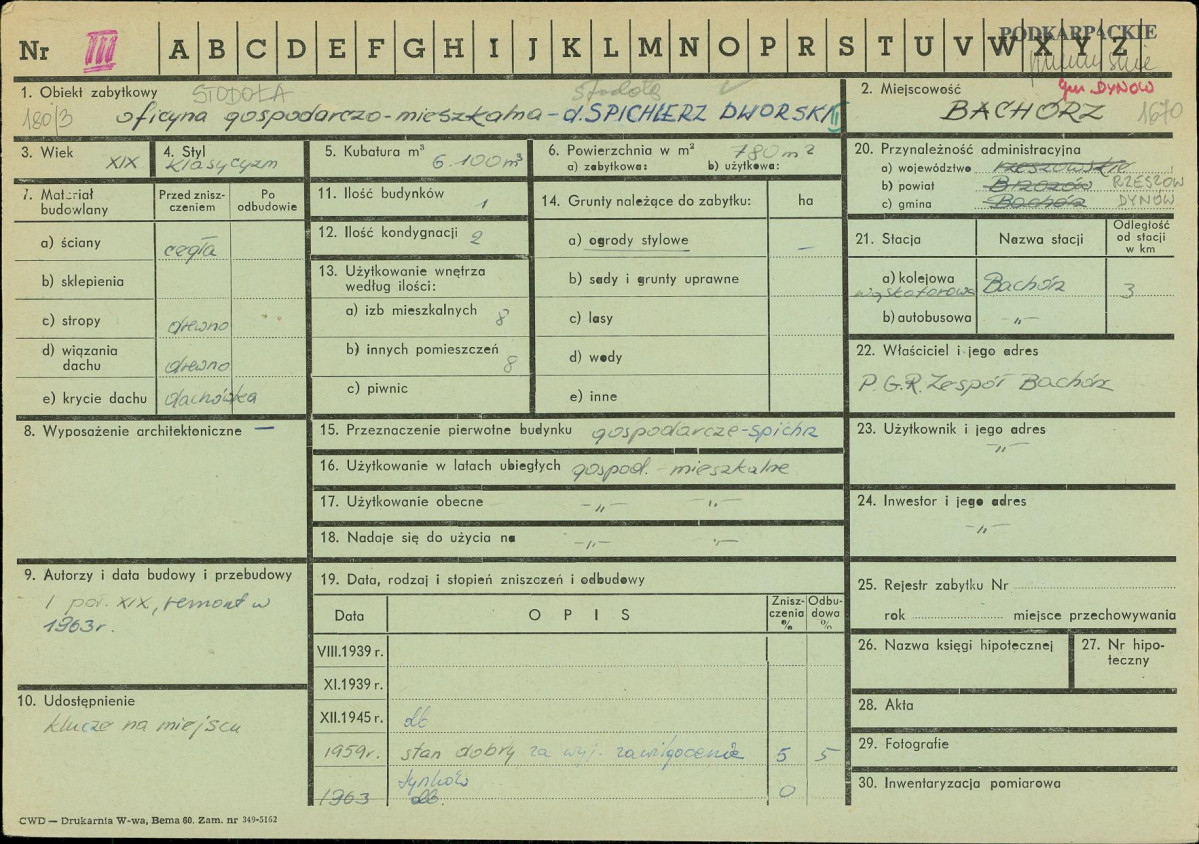 PODKARPACKIE
Nr III A B C D E F G H I J K L M N O P R S T U V W X Y Z
1. Obiekt zabytkowy STODOŁA stodoła
180/3 oficyna gospodarczo-mieszkalna - d. SPICHLERZ DWORSKI II
2. Miejscowość gm. DYNÓW
BACHÓRZ 1670
3. Wiek XIX
4. Styl
klasycyzm
5. Kubatura m³ 6.100 m³
6. Powierzchnia w m² 780 m²
a) zabytkowa: b) użytkowa:
7. Materiał budowlany
Przed zniszczeniem
Po odbudowie
a) ściany cegła
b) sklepienia
c) stropy drewno
d) wiązania dachu drewno
e) krycie dachu dachówka
8. Wyposażenie architektoniczne —
9. Autorzy i data budowy i przebudowy
I poł. XIX, remont w
1963 r.
10. Udostępnienie
klucze na miejscu
11. Ilość budynków 1
12. Ilość kondygnacji 2
13. Użytkowanie wnętrza
według ilości:
a) izb mieszkalnych 8
b) innych pomieszczeń 8
c) piwnic
14. Grunty należące do zabytku: ha
a) ogrody stylowe —
b) sady i grunty uprawne
c) lasy
d) wody
e) inne
15. Przeznaczenie pierwotne budynku gospodarcze-spichrz
16. Użytkowanie w latach ubiegłych gospod. - mieszkalne
17. Użytkowanie obecne -„- -„-
18. Nadaje się do użycia na -„- -„-
19. Data, rodzaj i stopień zniszczeń i odbudowy
Data OPIS Zniszczenia % Odbudowa %
VIII.1939 r.
XI.1939 r.
XII.1945 r. db
1959 r. stan dobry za wyj. zawilgocenia 5 5
tynków
1963 db. 0
20. Przynależność administracyjna
a) województwo rzeszowskie
b) powiat Brzozów RZESZÓW
c) gmina Bachórz DYNÓW
21. Stacja Nazwa stacji Odległość od stacji w km
a) kolejowa Bachórz 3
wąskotorowa
b) autobusowa -„-
22. Właściciel i jego adres
P.G.R. Zespół Bachórz
23. Użytkownik i jego adres
-„-
24. Inwestor i jego adres
-„-
25. Rejestr zabytku Nr
rok miejsce przechowywania
26. Nazwa księgi hipotecznej
27. Nr hipoteczny
28. Akta
29. Fotografie
30. Inwentaryzacja pomiarowa
CWD — Drukarnia W-wa, Bema 60. Zam. nr 349-5162